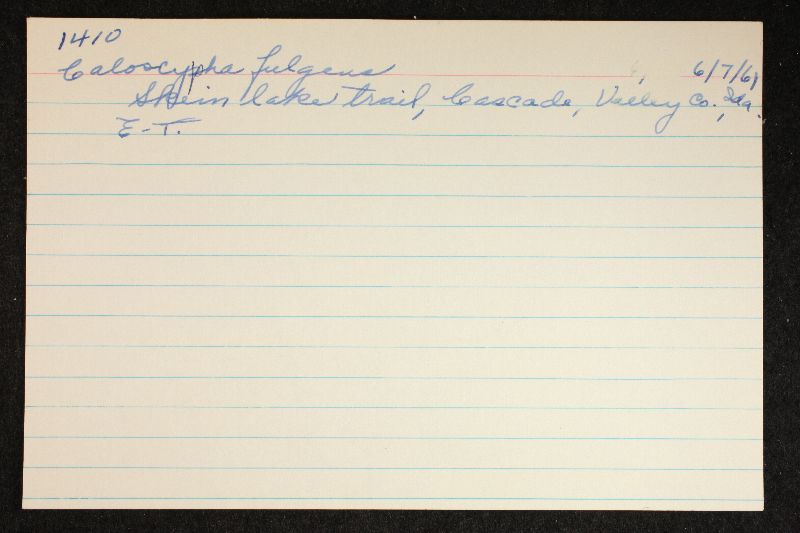 1410
Caloscypha fulgens 6/7/61
Skein lake trail, Cascade, Valley Co., Ida.
E.-T.